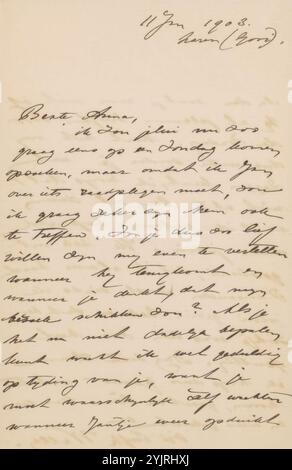 11 Jan 1903.
Laren (Gooi).
Beste Anna,
ik zou jelui nu zoo
graag eens op een Zondag komen
opzoeken, maar omdat ik Jan
over iets raadplegen moet, zou
ik graag zeker zijn hem ook
te treffen. Zou je dus zoo lief
willen zijn mij even te vertellen
wanneer hij terugkomt en
wanneer je denkt, dat mijn
bezoek schikken zou? Als je
het nu niet dadelijk bepalen
kunt wacht ik wel geduldig
op tijding van je, want je
moet waarschijnlijk zelf wachten
wanneer Jantje weer opduikt
alamy
Image ID: 2YJRHXJ
www.alamy.com